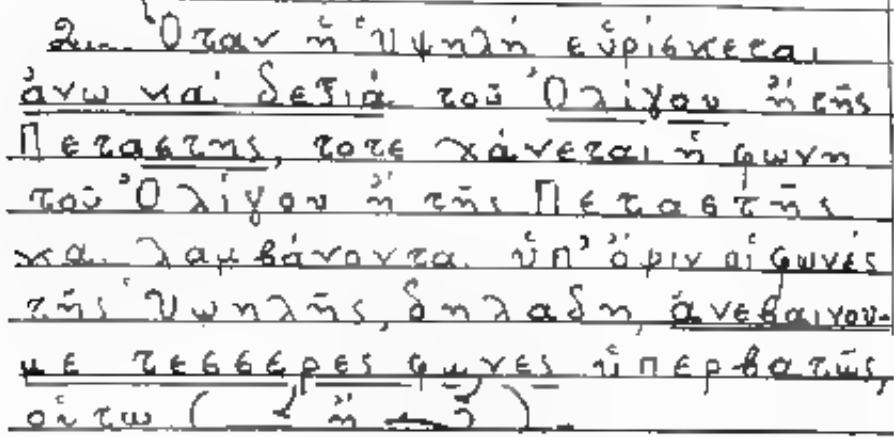 2... Ὅταν ἡ Ὑψηλή εὑρίσκεται
ἄνω καί δεξιά τοῦ Ὀλίγου ἤ τῆς
Πεταστης, τοτε χάνεται ἡ φωνη
τοῦ Ὀλίγου ἤ τῆς Πεταστῆς
κα. λαμβάνοντα. ὑπ' ὄψιν αἱ φωνές
τῆς Ὑψηλῆς, δηλαδη, ἀνεβαινου-
με τεσσερες φωνες ὑπερβατῶς,
οὕτω ( ἤ ).